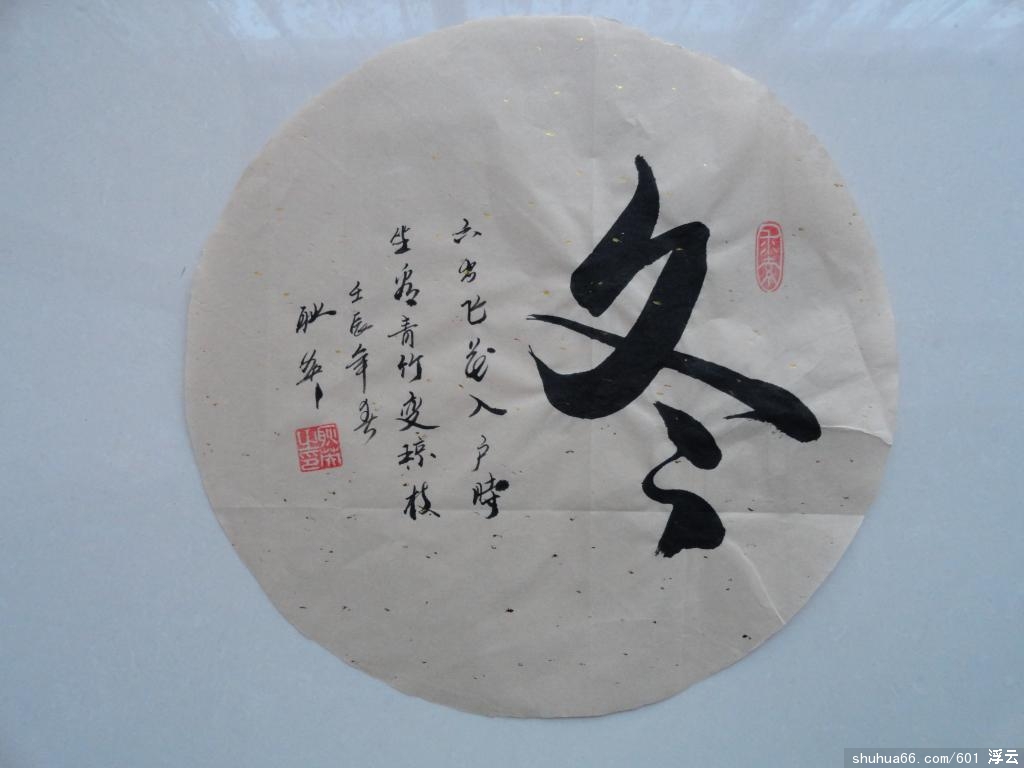 冬
六出飞花入户時
坐看青竹变琼枝
壬辰年春
耿华
shuhua66.com/601 浮云